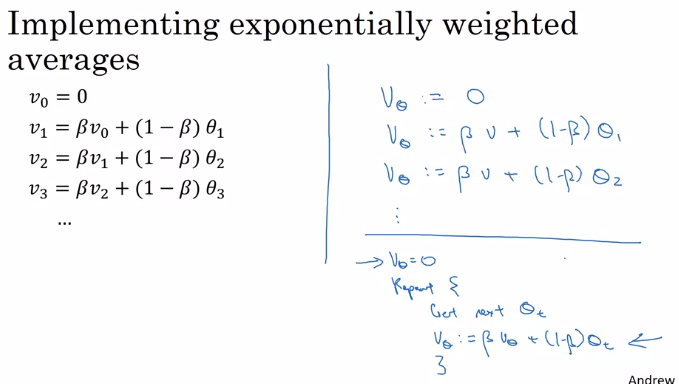 Implementing exponentially weighted
averages
v₀ = 0
v₁ = βv₀ + (1 − β) θ₁
v₂ = βv₁ + (1 − β) θ₂
v₃ = βv₂ + (1 − β) θ₃
...
V_θ := 0
V_θ := β v + (1-β) θ₁
V_θ := β v + (1-β) θ₂
⋮
→ V_θ = 0
Repeat {
Get next θ_t
V_θ := β V_θ + (1-β) θ_t ←
}
Andrew